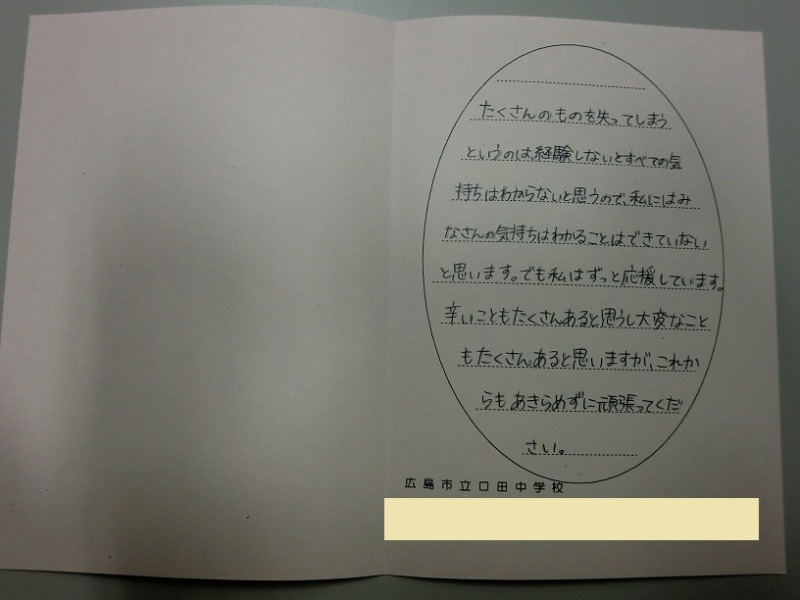 たくさんのものを失ってしまう
というのは、経験しないとすべての気
持ちはわからないと思うので、私にはみ
なさんの気持ちはわかることはできていない
と思います。でも私はずっと応援しています。
辛いこともたくさんあると思うし大変なこと
もたくさんあると思いますが、これか
らもあきらめずに頑張ってくだ
さい。
広島市立口田中学校